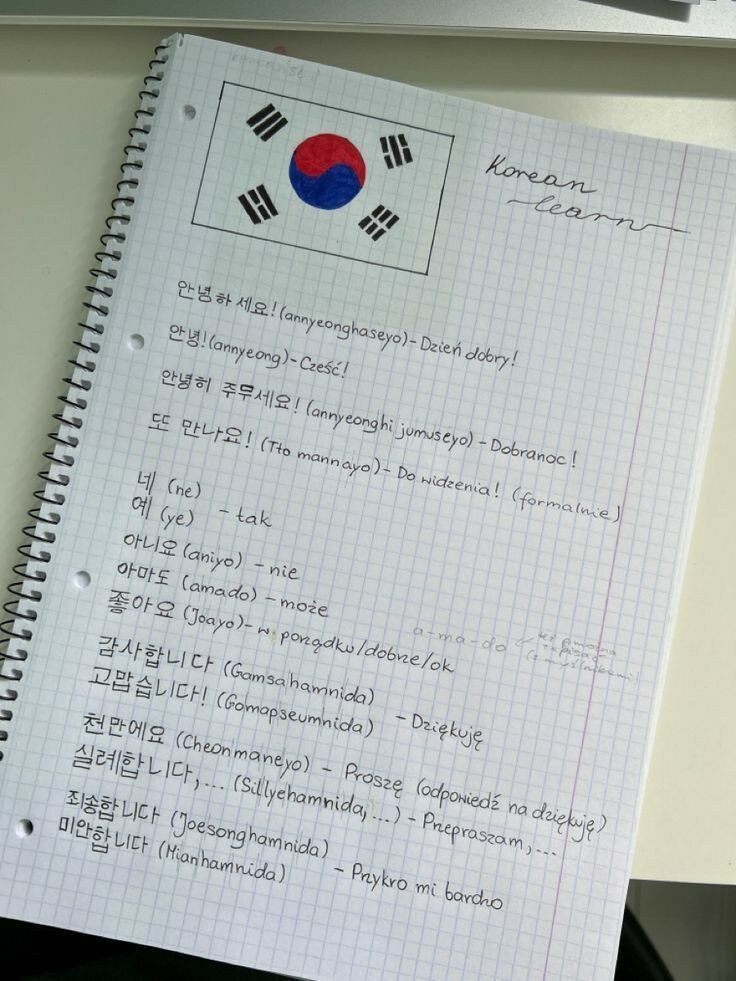 Korean
learn
안녕하세요! (annyeonghaseyo) - Dzień dobry!
안녕! (annyeong) - Cześć!
안녕히 주무세요! (annyeonghi jumuseyo) - Dobranoc!
또 만나요! (Tto mannayo) - Do widzenia! (formalnie)
네 (ne)
예 (ye) - tak
아니요 (aniyo) - nie
아마도 (amado) - może
좋아요 (Joayo) - w porządku/dobrze/ok
a-ma-do
감사합니다 (Gamsahamnida)
고맙습니다! (Gomapseumnida) - Dziękuję
천만에요 (Cheonmaneyo) - Proszę (odpowiedź na dziękuję)
실례합니다,... (Sillyehamnida,...) - Przepraszam,...
죄송합니다 (Joesonghamnida)
미안합니다 (Mianhamnida) - Przykro mi bardzo